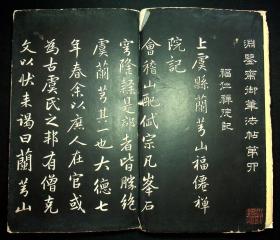 淵鑒齋御筆法帖第
福仙禪院記
上虞縣蘭芎山福僊禪
院記
會稽山配岱宗凡峯石
穹隆綿是派者皆勝絶
虞蘭芎其一也大德七
年春余以庶人在官或
為古虞氏之邦有僧克
文以狀来謁曰蘭芎山